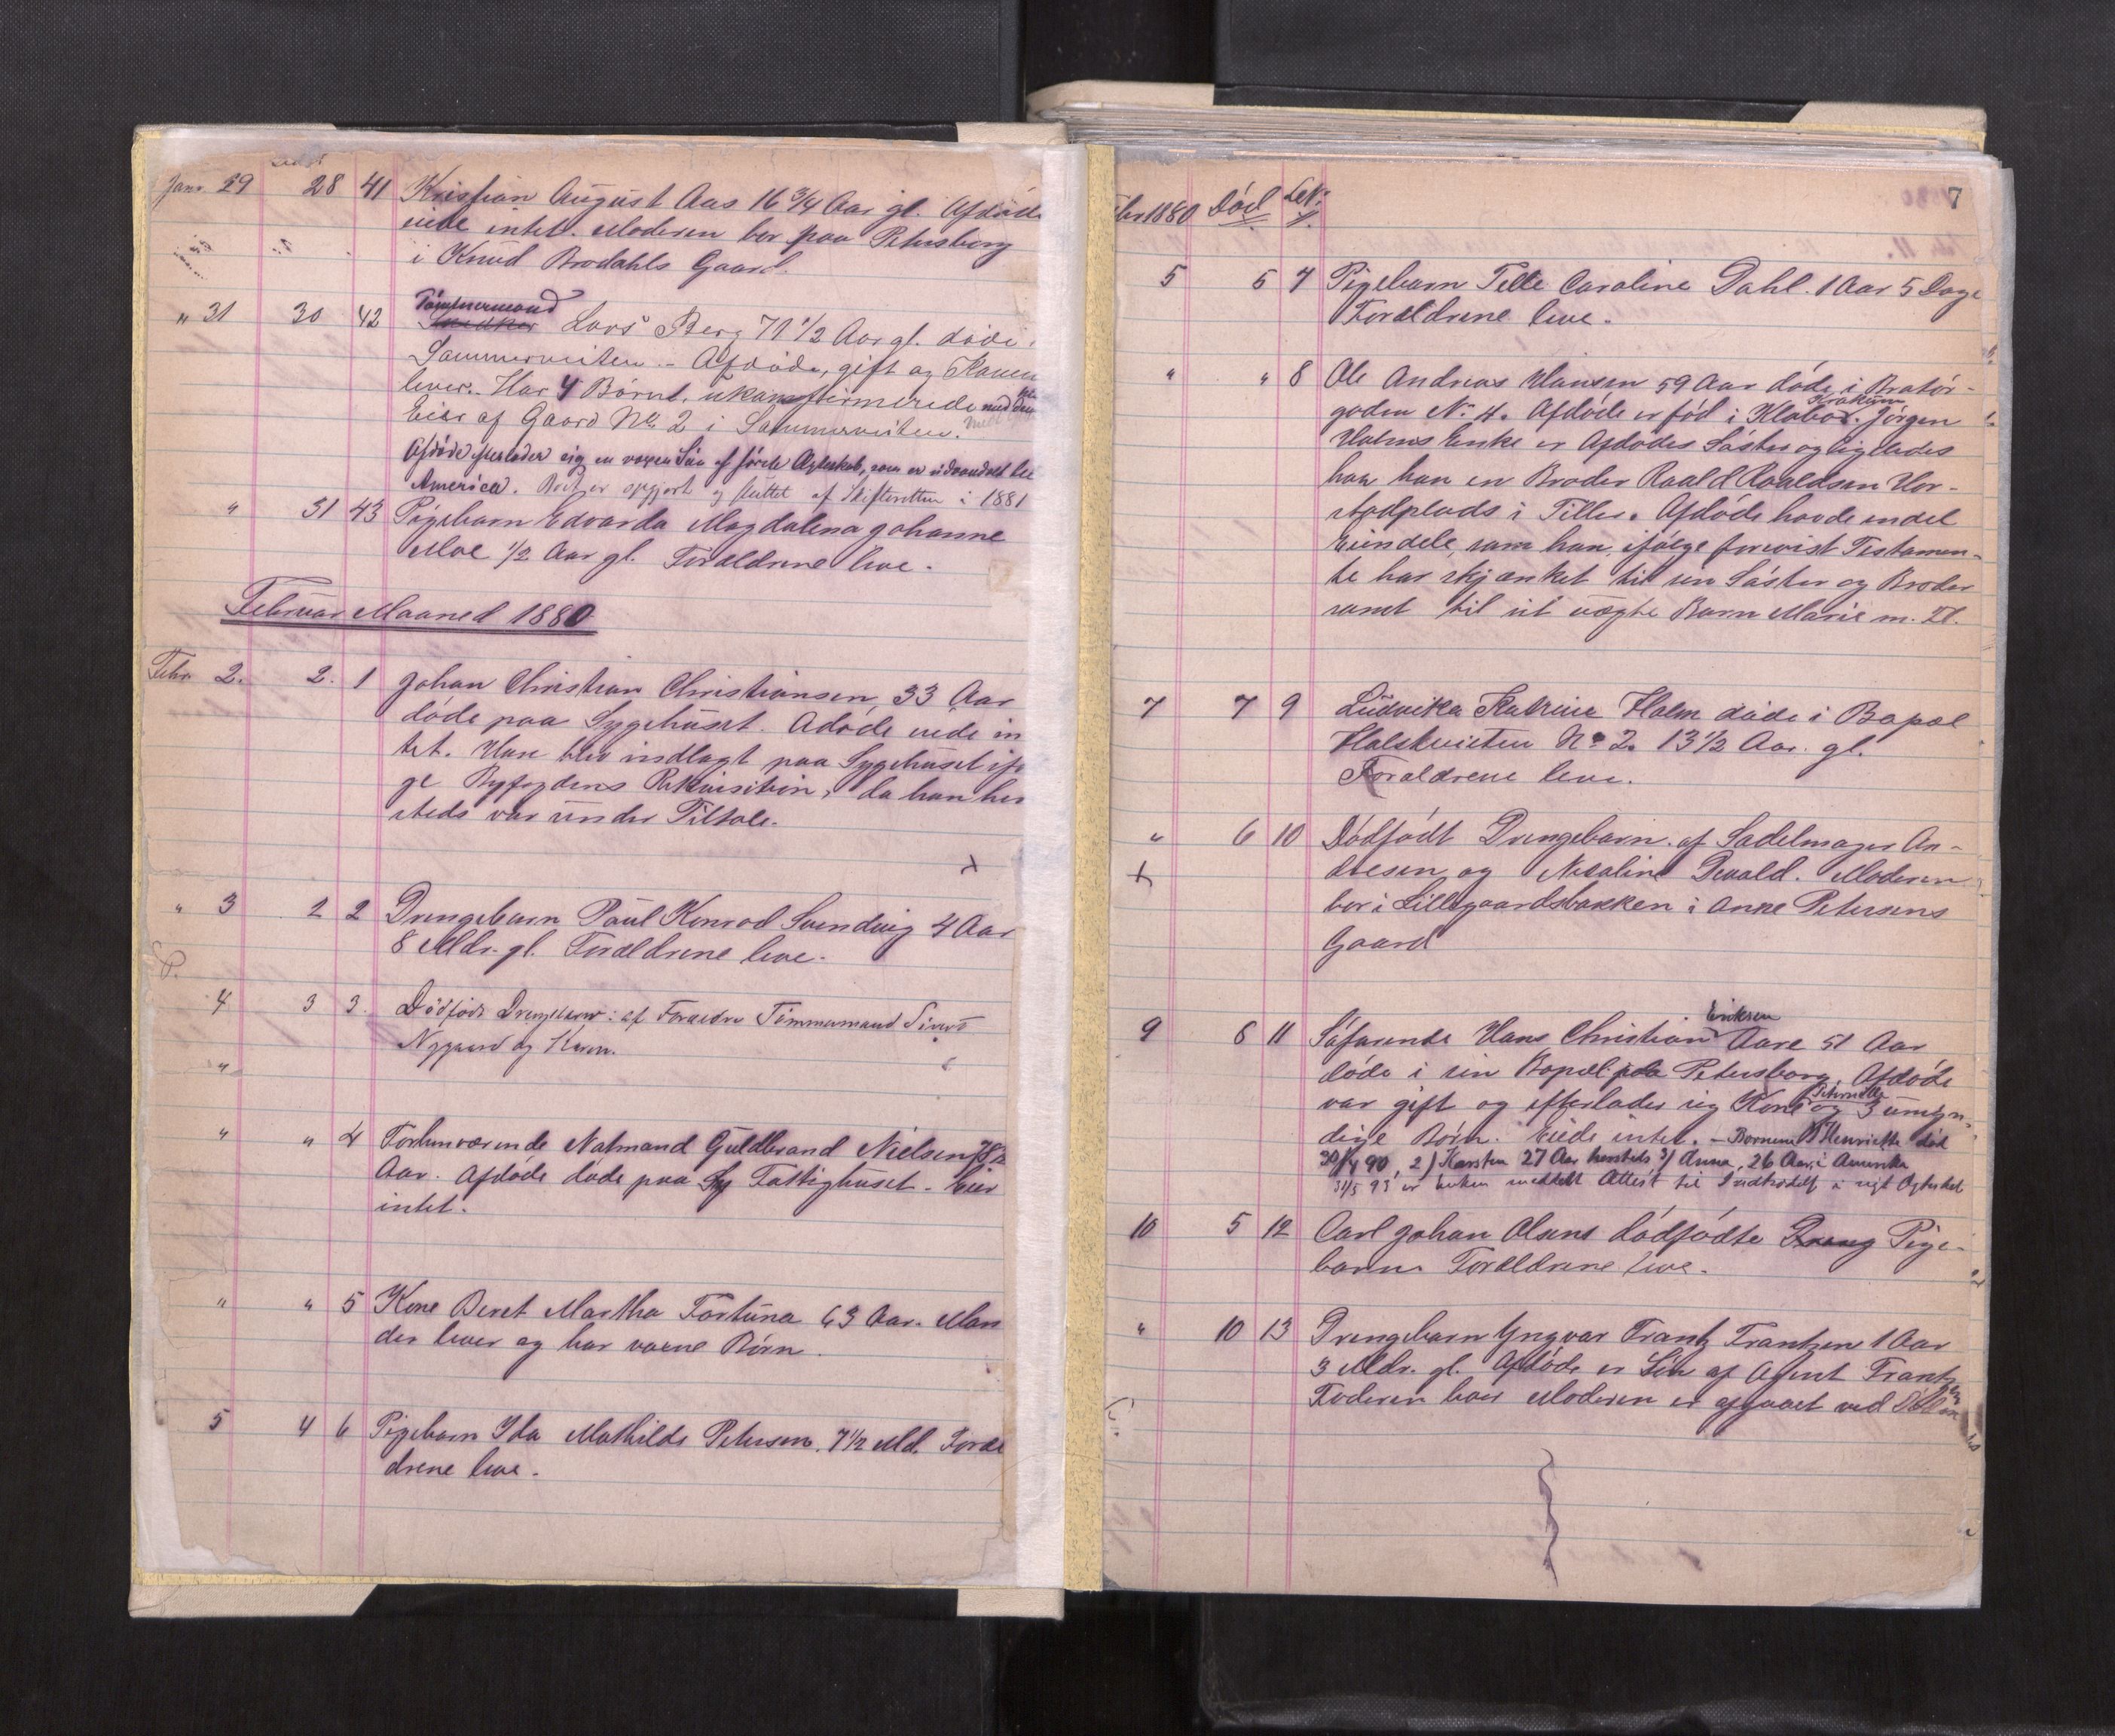 Janr. 29 28 41 Kristian August Aas 16 3/4 Aar gl. Afdøde
eiede intet. Moderen bor paa Petersborg
i Knud Brodahls Gaard.
Tømmermand
" 31 30 42 Snedker Lars Berg 71 1/2 Aar gl. døde i
Sommerveiten. - Afdøde, gift og Konen
lever. Har 4 Børn, ukonfirmerede med den
Eier af Gaard No. 2 i Sommerveiten.
Afdøde efterlader sig en voxen Søn af første Ægteskab, som er udvandret til
America. Boet er opgjort og sluttet af Skifteretten i 1881
" 31 43 Pigebarn Edvarda Magdalena Johanne
Moe 1/2 Aar gl. Forældrene leve.
Februar Maaned 1880
Febr. 2. 2. 1 Johan Christian Christiansen, 33 Aar
døde paa Sygehuset. Adøde eiede in
tet. Han blev indlagt paa Sygehuset ifø
ge Byfogdens Rekvisition, da han her
steds var under Tiltale.
" 3 2 2 Drengebarn Paul Konrad Svendvig 4 Aar
8 Mdr. gl. Forældrene leve.
4 3 3. Dødfødt Drengebarn: af Forældre Tømmermand Sivert
Nygaard og Karen.
" " 4 Forhenværende Natmand Guldbrand Nielsen 78 1/2
Aar. Afdøde døde paa Sy Fattighuset. Eier
intet.
" " 5 Kone Beret Martha Fortuna 63 Aar. Man
den lever og har voxne Børn.
5 4 6 Pigebarn Ida Mathilde Petersen. 7 1/2 Md. Foræl
drene leve.
7
Febr 1880 Død LNo
5 5 7 Pigebarn Telle Caroline Dahl. 1 Aar 5 Dage
Forældrene leve.
" " 8 Ole Andreas Hansen 59 Aar døde i Bratør-
gaden No. 4. Afdøde er fød i Klæbo. Jørgen
Holms Enke er Afdødes Søster og ligeledes
har han en Broder Roald Roaldsen Hor-
stadplads i Tiller. Afdøde havde endel
Eiendele, som han, ifølge forevist Testamen-
te har skjænket til sin Søster og Broder
samt til et uægte Barn Marie m. Fl.
7 7 9 Ludvika Katrine Holm døde i Bopæl
Holstveiten No. 2. 13 1/2 Aar. gl.
Forældrene leve.
" 6 10 Dødfødt Drengebarn. af Sadelmager An-
dresen og Nicoline Devald. Moderen
bor i Lillegaardsbakken i Anne Petersens
Gaard
Eriksen
9 8 11 Søfarende Hans Christian Aare 51 Aar
døde i sin Bopæl paa Petersborg. Afdøde
var gift og efterlader sig Kone og 3 umyn-
dige Børn. Eiede intet. - Børnene 1) Henriette død
30/4 90, 2) Karsten 27 Aar hersteds 3) Anna, 26 Aar, i Amerika
31/5 93 er Enken meddelt Attest til Indtrædelse i nyt Ægteskab
10 5 12 Carl Johan Olsens dødfødte Dreng Pige-
barn. Forældrene leve.
" 10 13 Drengebarn Yngvar Frantz Frantzen 1 Aar
3 Mdr. gl. Afdøde er Søn af Agent Frantzen
Faderen lever Moderen er afgaaet ved Døden